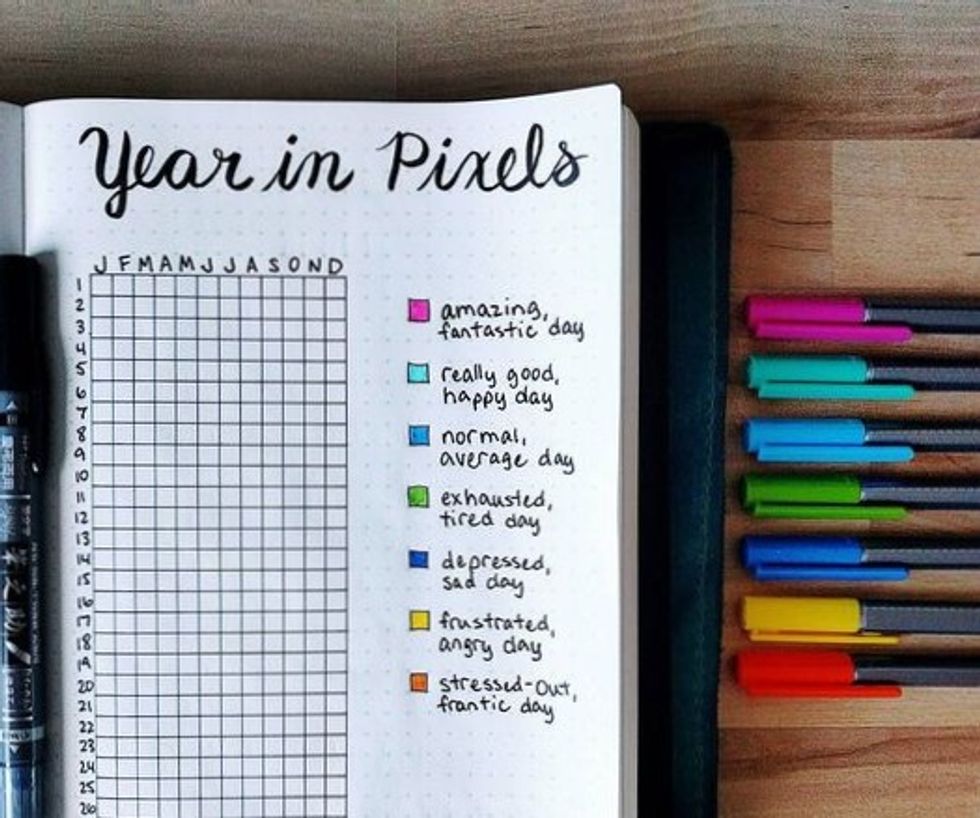 Year in Pixels
J F M A M J J A S O N D
1
2
3
4
5
6
7
8
9
10
11
12
13
14
15
16
17
18
19
20
21
22
23
24
25
26
amazing,
fantastic day
really good,
happy day
normal,
average day
exhausted,
tired day
depressed,
sad day
frustrated,
angry day
stressed-out,
frantic day